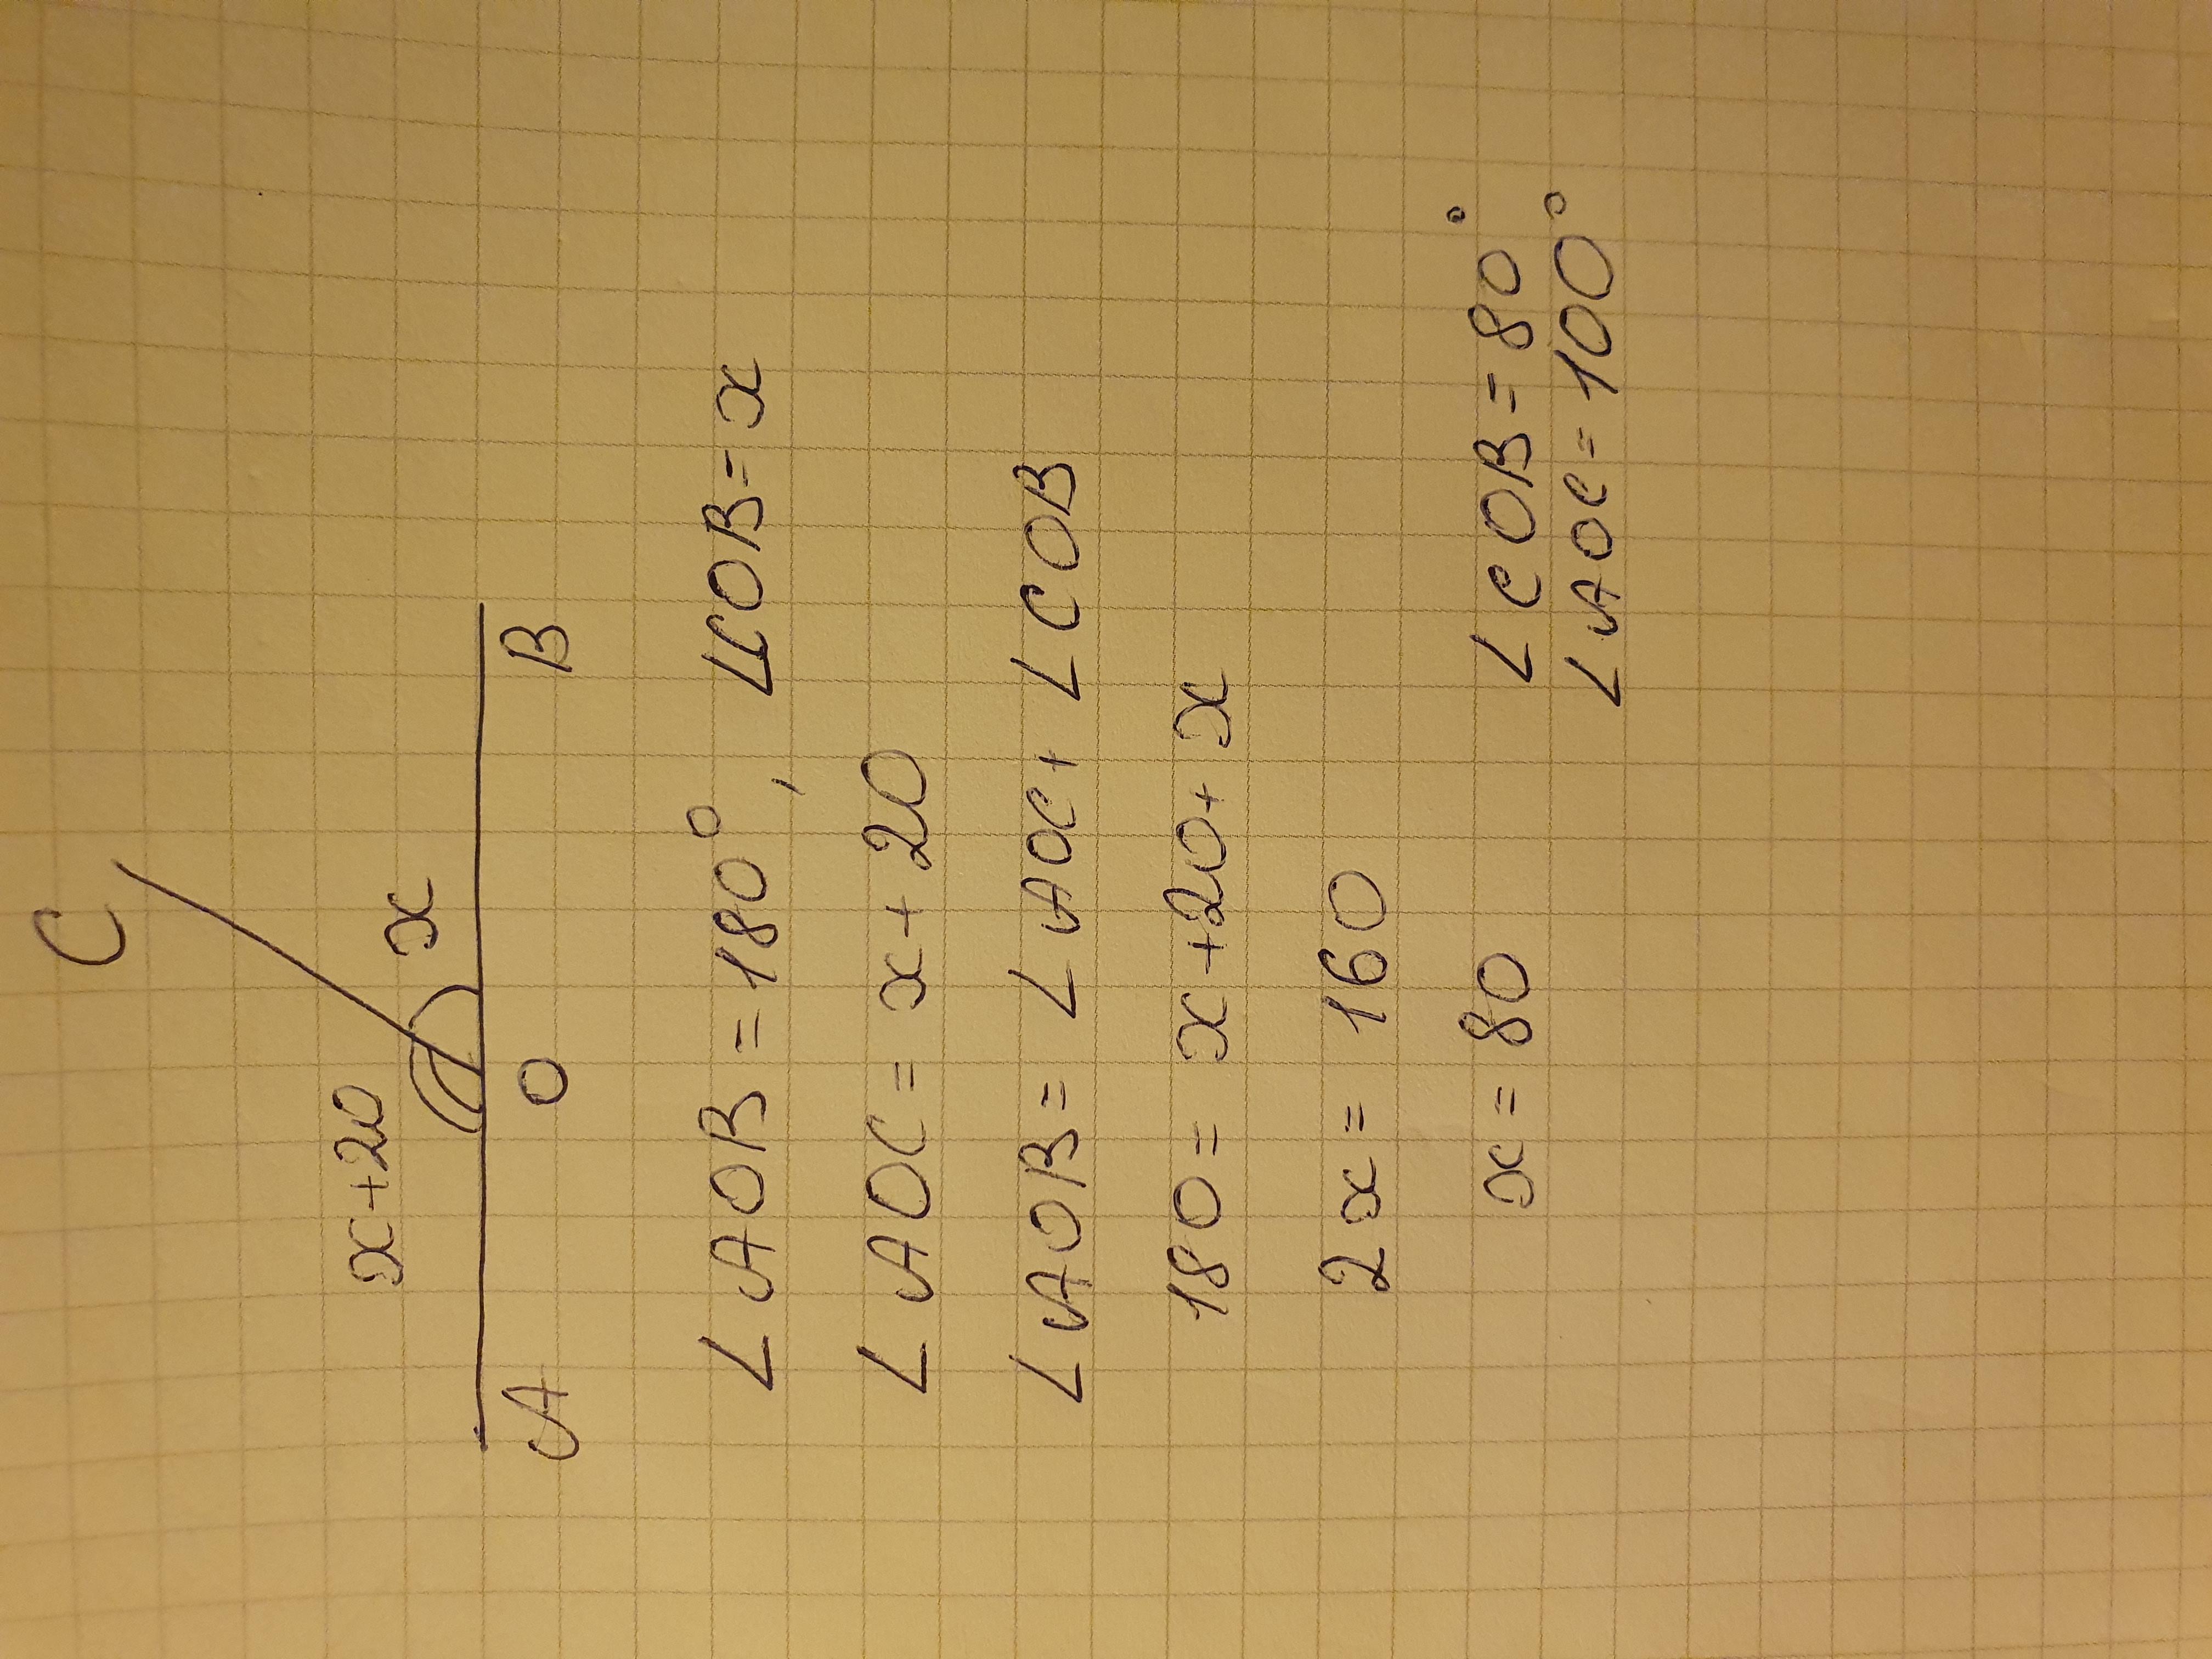 C
x+20 x
A O B
∠AOB = 180°, ∠COB = x
∠AOC = x + 20
∠AOB = ∠AOC + ∠COB
180 = x+20+x
2x = 160
x = 80 ∠COB = 80°
∠AOC = 100°